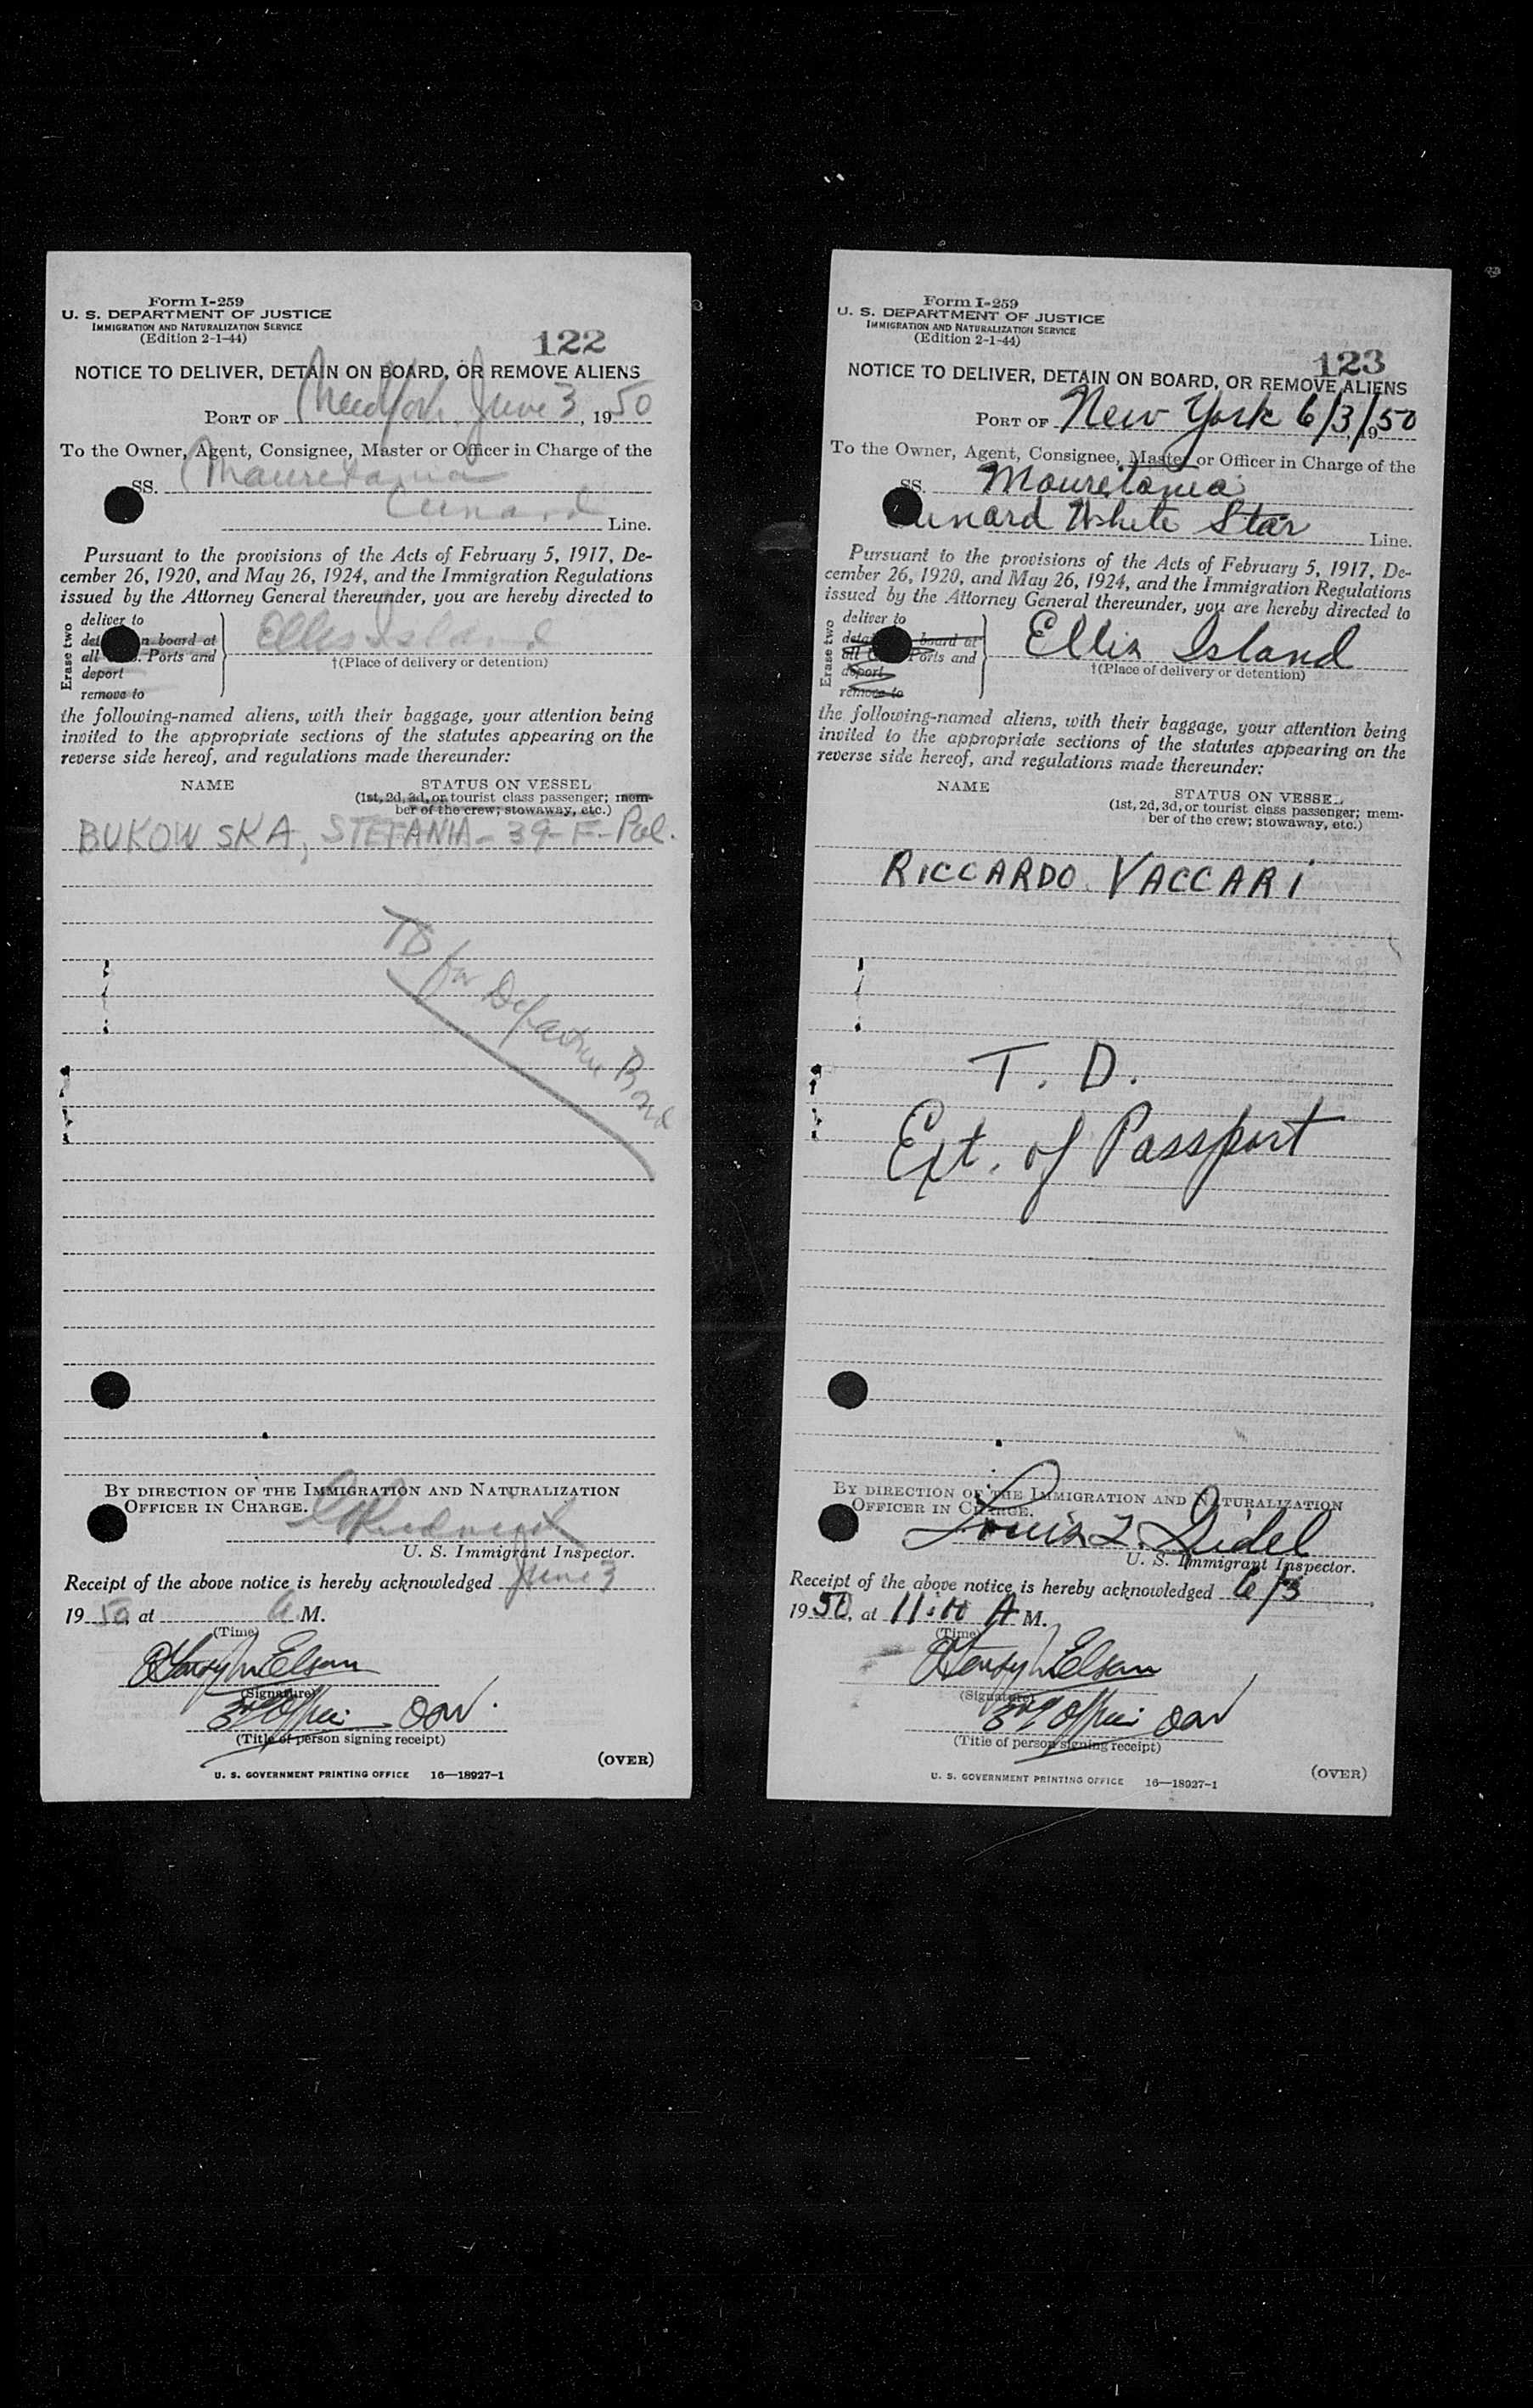 Form I-259
U. S. DEPARTMENT OF JUSTICE
IMMIGRATION AND NATURALIZATION SERVICE
(Edition 2-1-44)
122
NOTICE TO DELIVER, DETAIN ON BOARD, OR REMOVE ALIENS
PORT OF New York June 3, 1950
To the Owner, Agent, Consignee, Master or Officer in Charge of the
SS. Mauretania
Cunard Line.
Pursuant to the provisions of the Acts of February 5, 1917, De-
cember 26, 1920, and May 26, 1924, and the Immigration Regulations
issued by the Attorney General thereunder, you are hereby directed to
Erase two
deliver to
n board at
all Ports and
deport
remove to
Ellis Island
†(Place of delivery or detention)
the following-named aliens, with their baggage, your attention being
invited to the appropriate sections of the statutes appearing on the
reverse side hereof, and regulations made thereunder:
NAME STATUS ON VESSEL
(1st, 2d, 3d, or tourist class passenger; mem-
ber of the crew; stowaway, etc.)
BUKOWSKA, STEFANIA - 39 - F - Pol.
TD for Departure Bond
BY DIRECTION OF THE IMMIGRATION AND NATURALIZATION
OFFICER IN CHARGE.
U. S. Immigrant Inspector.
Receipt of the above notice is hereby acknowledged June 3
1950, at A M.
(Time)
(Signature)
(Title of person signing receipt)
(OVER)
U. S. GOVERNMENT PRINTING OFFICE 16—18927-1
Form I-259
U. S. DEPARTMENT OF JUSTICE
IMMIGRATION AND NATURALIZATION SERVICE
(Edition 2-1-44)
123
NOTICE TO DELIVER, DETAIN ON BOARD, OR REMOVE ALIENS
PORT OF New York 6/3/1950
To the Owner, Agent, Consignee, Master or Officer in Charge of the
SS. Mauretania
Cunard White Star Line.
Pursuant to the provisions of the Acts of February 5, 1917, De-
cember 26, 1920, and May 26, 1924, and the Immigration Regulations
issued by the Attorney General thereunder, you are hereby directed to
Erase two
deliver to
board at
all Ports and
deport
remove to
Ellis Island
†(Place of delivery or detention)
the following-named aliens, with their baggage, your attention being
invited to the appropriate sections of the statutes appearing on the
reverse side hereof, and regulations made thereunder:
NAME STATUS ON VESSEL
(1st, 2d, 3d, or tourist class passenger; mem-
ber of the crew; stowaway, etc.)
RICCARDO VACCARI
T. D.
Ext. of Passport
BY DIRECTION OF THE IMMIGRATION AND NATURALIZATION
OFFICER IN CHARGE.
Louis
U. S. Immigrant Inspector.
Receipt of the above notice is hereby acknowledged 6/3,
1950, at 11:00 A M.
(Time)
(Signature)
(Title of person signing receipt)
(OVER)
U. S. GOVERNMENT PRINTING OFFICE 16—18927-1